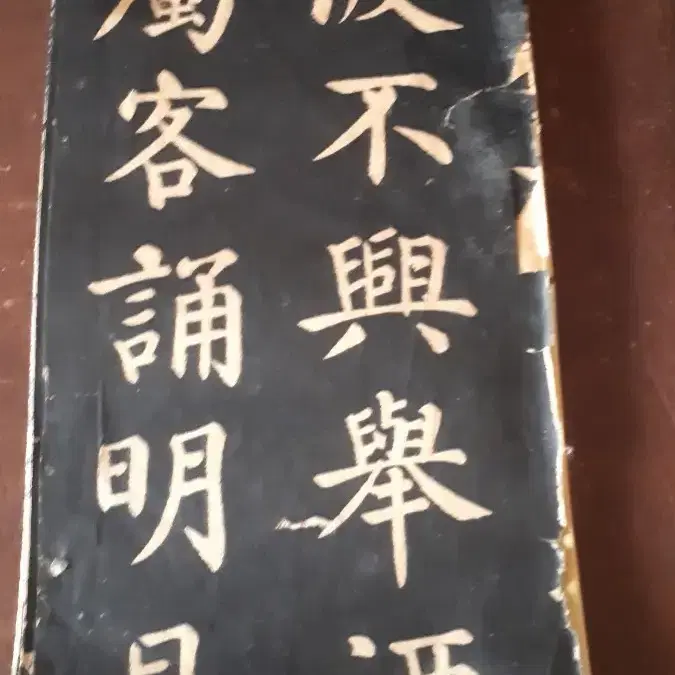 波不興舉酒
屬客誦明月